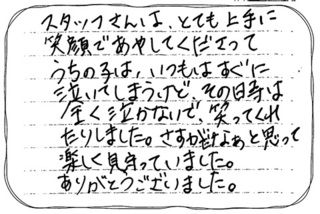 スタッフさんは、とても上手に
笑顔であやしてくださって
うちの子は、いつもはすぐに
泣いてしまうけど、その日等は
全く泣かないで、笑ってくれ
たりしました。さすがだなぁと思って
楽しく見守っていました。
ありがとうございました。